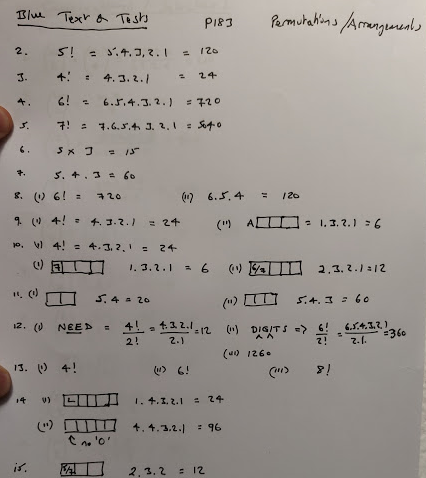 Blue Text & Tests P183 Permutations/Arrangements
2. 5! = 5.4.3.2.1 = 120
3. 4! = 4.3.2.1 = 24
4. 6! = 6.5.4.3.2.1 = 720
5. 7! = 7.6.5.4.3.2.1 = 5040
6. 5 x 3 = 15
7. 5.4.3 = 60
8. (i) 6! = 720 (ii) 6.5.4 = 120
9. (i) 4! = 4.3.2.1 = 24 (ii) A = 1.3.2.1 = 6
10. (i) 4! = 4.3.2.1 = 24
(ii) 7 1.3.2.1 = 6 (iii) 6/7 2.3.2.1 = 12
11. (i) 5.4 = 20 (ii) 5.4.3 = 60
12. (i) NEED = 4!/2! = 4.3.2.1/2.1 = 12 (ii) DIGITS => 6!/2! = 6.5.4.3.2.1/2.1. = 360
(iii) 1260
13. (i) 4! (ii) 6! (iii) 8!
14 (i) 1.4.3.2.1 = 24
(ii) 4.4.3.2.1 = 96
no '0'
15. 2.3.2 = 12